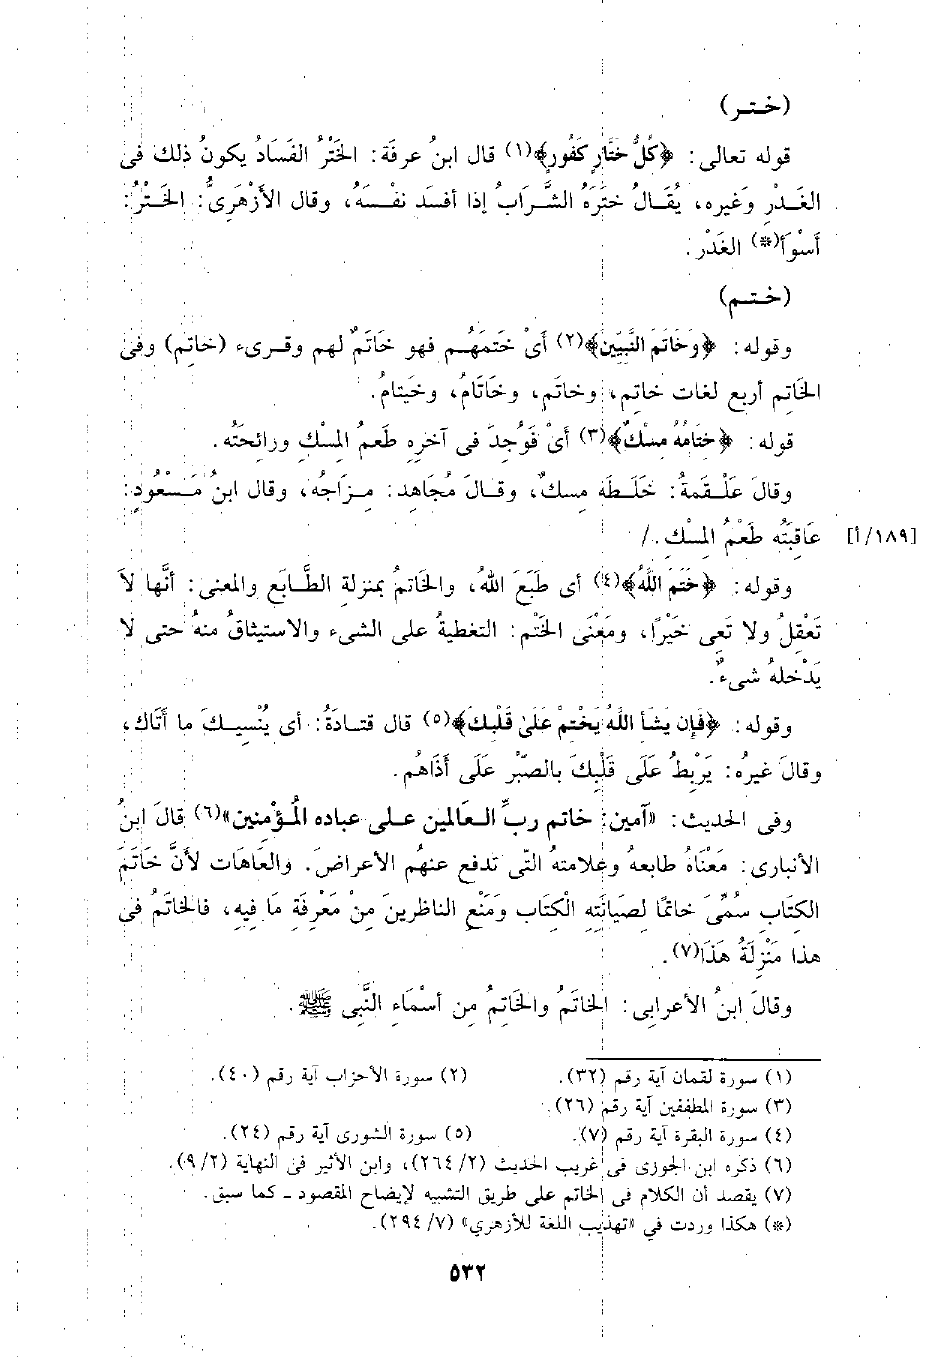 (ختر)
قوله تعالى: ﴿كُلُّ خَتَّارٍ كَفُورٍ﴾(١) قال ابنُ عرفَة: الخَتْرُ الفَسَادُ يكونُ ذلك فى
الغَدْرِ وَغيره، يُقَالُ خَتَرَهُ الشَّرَابُ إذا أفسَد نفْسَهُ، وقال الأزْهَرِىُّ: الخَتْرُ:
أَسْوَأ(*) الغَدْر.
(ختم)
وقوله: ﴿وَخَاتَمَ النَّبِيّينَ﴾(٢) أىْ خَتَمَهُم فهو خَاتَمٌ لهم وقرىء (خاتِم) وفى
الخَاتِم أربع لغات خاتِم، وخاتَم، وخَاتَامُ، وخَيتامُ.
قوله: ﴿خِتَامُهُ مِسْكٌ﴾(٣) أىْ فَوُجِدَ فى آخرِهِ طَعمُ المِسْكِ ورائحتُه.
وقالَ عَلْقَمةُ: خَلَطَه مِسكٌ، وقالَ مُجَاهِد: مِزَاجُه، وقال ابنُ مَسْعُودٍ:
عَاقِبَتُه طَعْمُ المِسْكِ. / [١٨٩/أ]
وقوله: ﴿خَتَمَ اللَّهُ﴾(٤) أى طَبَعَ اللهُ، والخَاتمُ بمنزلةِ الطَّابَعِ والمعنى: أنَّها لاَ
تَعْقِلُ ولا تَعِى خَيْرًا، ومَعْنَى الخَتْم: التغطيةُ على الشىء والاستيثاقُ منهُ حتى لا
يَدْخلهُ شىءٌ.
وقوله: ﴿فَإِن يَشَأِ اللَّهُ يَخْتِمْ عَلَىٰ قَلْبِكَ﴾(٥) قال قتادَةُ: أى يُنْسِيكَ ما أتَاكَ،
وقالَ غيرُه: يَرْبِطُ عَلَى قَلْبِكَ بالصَّبْرِ عَلَى أذَاهم.
وفى الحديث: «آمين: خاتم ربِّ العَالمين على عباده المُؤْمنين»(٦) قالَ ابنُ
الأنبارى: مَعْنَاهُ طابعهُ وعلامتهُ التى تدفع عنهُم الأعراضَ. والعَاهَات لأنَّ خَاتَمَ
الكِتَابِ سُمِّىَ خاتمًا لصيَانَتِهِ الْكِتَاب ومَنْعِ الناظرينَ مِنْ مَعْرِفَةِ مَا فيهِ، فالخاتَمُ فى
هذا مَنْزِلَةُ هَذَا(٧).
وقالَ ابنُ الأعرابى: الخاتَمُ والخَاتِمُ من أسْمَاءِ النَّبِى ﷺ.
(١) سورة لقمان آية رقم (٣٢). (٢) سورة الأحزاب آية رقم (٤٠).
(٣) سورة المطففين آية رقم (٢٦).
(٤) سورة البقرة آية رقم (٧). (٥) سورة الشورى آية رقم (٢٤).
(٦) ذكره ابن الجوزى فى غريب الحديث (٢/ ٢٦٤)، وابن الأثير فى النهاية (٢/ ٩).
(٧) يقصد أن الكلام فى الخاتم على طريق التشبيه لإيضاح المقصود ـ كما سبق.
(*) هكذا وردت في «تهذيب اللغة للأزهري» (٧/ ٢٩٤).
٥٣٢